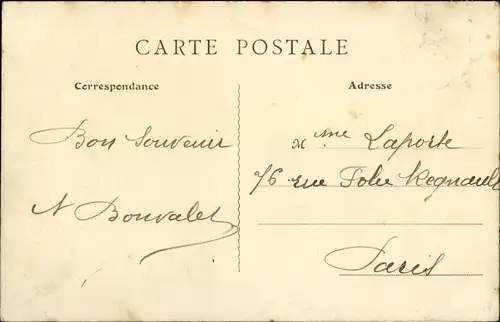 CARTE POSTALE
Correspondance
Bon Souvenir
A Bouvalet
Adresse
Mme Laporte
76 rue Folie Regnault
Paris